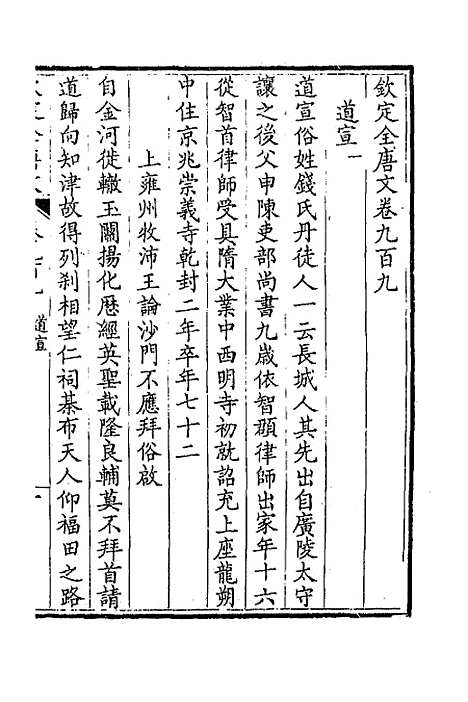 欽定全唐文卷九百九
道宣一
道宣俗姓錢氏丹徒人一云長城人其先出自廣陵太守
讓之後父申陳吏部尚書九歲依智頵律師出家年十六
從智首律師受具隋大業中西明寺初就詔充上座龍朔
中住京兆崇義寺乾封二年卒年七十二
上雍州牧沛王論沙門不應拜俗啟
自金河徙轍玉關揚化歷經英聖載隆良輔莫不拜首請
道歸向知津故得列剎相望仁祠棊布天人仰福田之路
道宣